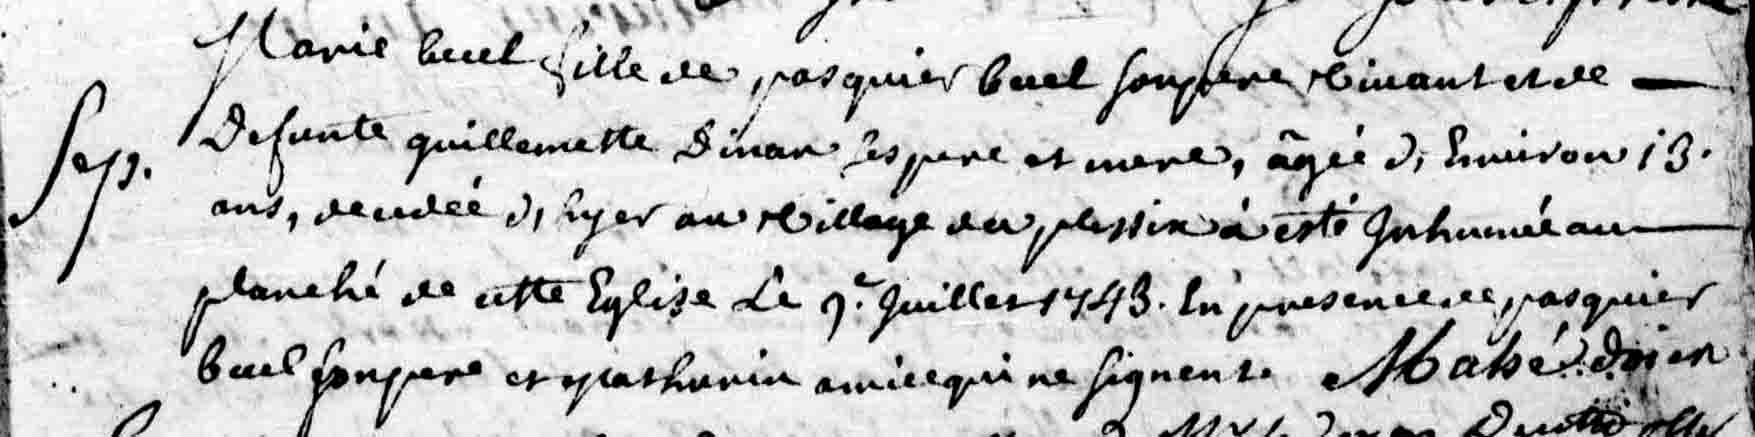 Marie buel fille de pasquier buel son pere vivant et de
Sep. Defunte guillemette Dinan ses pere et mere, âgée d'Environ 13.
ans, decedée d'hyer au village du plessix à esté Inhumée au
planché de cette Eglise Le 9.e Juillet 1743. En presence de pasquier
buel son pere et Mathurin amice qui ne signent. Mahé. doien